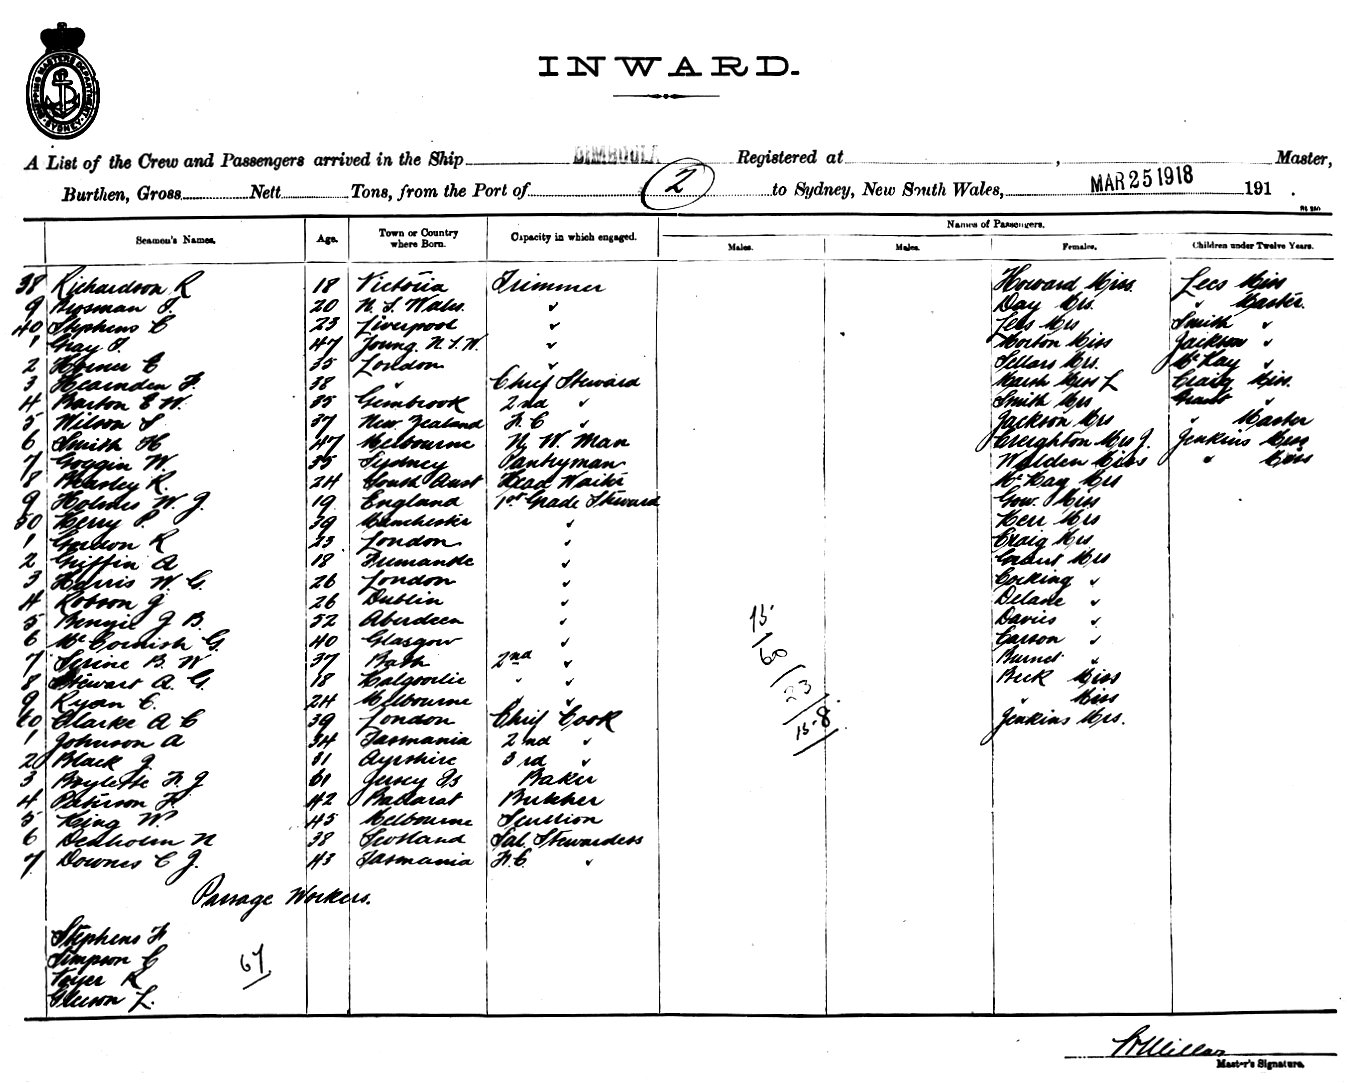 SHIPPING MASTERS DEPARTMENT SYDNEY
INWARD.
A List of the Crew and Passengers arrived in the Ship DIMBOOLA Registered at , Master,
Burthen, Gross Nett Tons, from the Port of 2 to Sydney, New South Wales, MAR 25 1918 191 .
Names of Passengers.
Seamen's Names. Age. Town or Country where Born. Capacity in which engaged. Males. Males. Females. Children under Twelve Years.
38 Richardson R 18 Victoria Trimmer Howard Miss Lees Miss
9 Brosman J. 20 N. S. Wales. " Day Mrs. " Master.
40 Stephens C 23 Liverpool " Lees Mrs Smith "
1 Gray J. 47 Young N.S.W. " Morton Miss Jackson "
2 Horner C 35 London " Sellars Mrs. McKay "
3 Hearnden F. 38 " Chief Steward Marsh Miss L Craig Miss.
4 Barton E W. 35 Gembrook 2nd " Smith Mrs Grant "
5 Wilson S 37 New Zealand F. C " Jackson Mrs " Master
6 Smith H 47 Melbourne N. W. Man Creighton Mrs J. Jenkins Miss
7 Goggin W. 35 Sydney Pantryman Walden Miss " Miss
8 Beasley R. 24 South Aust Head Waiter McKay Mrs
9 Holmes W. J. 19 England 1st Grade Steward Gow. Miss
50 Kerry P. 39 Manchester " Kerr Mrs
1 Gordon R 23 London " Craig Mrs
2 Griffin A 18 Fremantle " Grant Mrs
3 Harris W. G. 26 London " Cocking "
4 Robson J 26 Dublin " Delane "
5 Benzie J B. 52 Aberdeen " Davies "
6 McCornish G. 40 Glasgow " Carson "
7 Serine B. W 37 Bath 2nd " Burnet "
8 Stewart A. G. 18 Kalgoorlie " " Buck Miss
9 Ryan C. 24 Melbourne " " " Miss
60 Clarke A C 39 London Chief Cook Jenkins Mrs.
1 Johnson A 34 Tasmania 2nd "
2 Black J. 31 Ayrshire 3rd "
3 Boylette F. J 61 Jersey Is Baker
4 Paterson F. 42 Ballarat Butcher
5 King W. 45 Melbourne Scullion
6 Denholm N 38 Scotland Sal. Stewardess
7 Downes C J. 43 Tasmania F.C. "
15
60
23
15-8
Passage Workers.
Stephens F
Simpson C
R
Gleeson L.
67
Master's Signature.